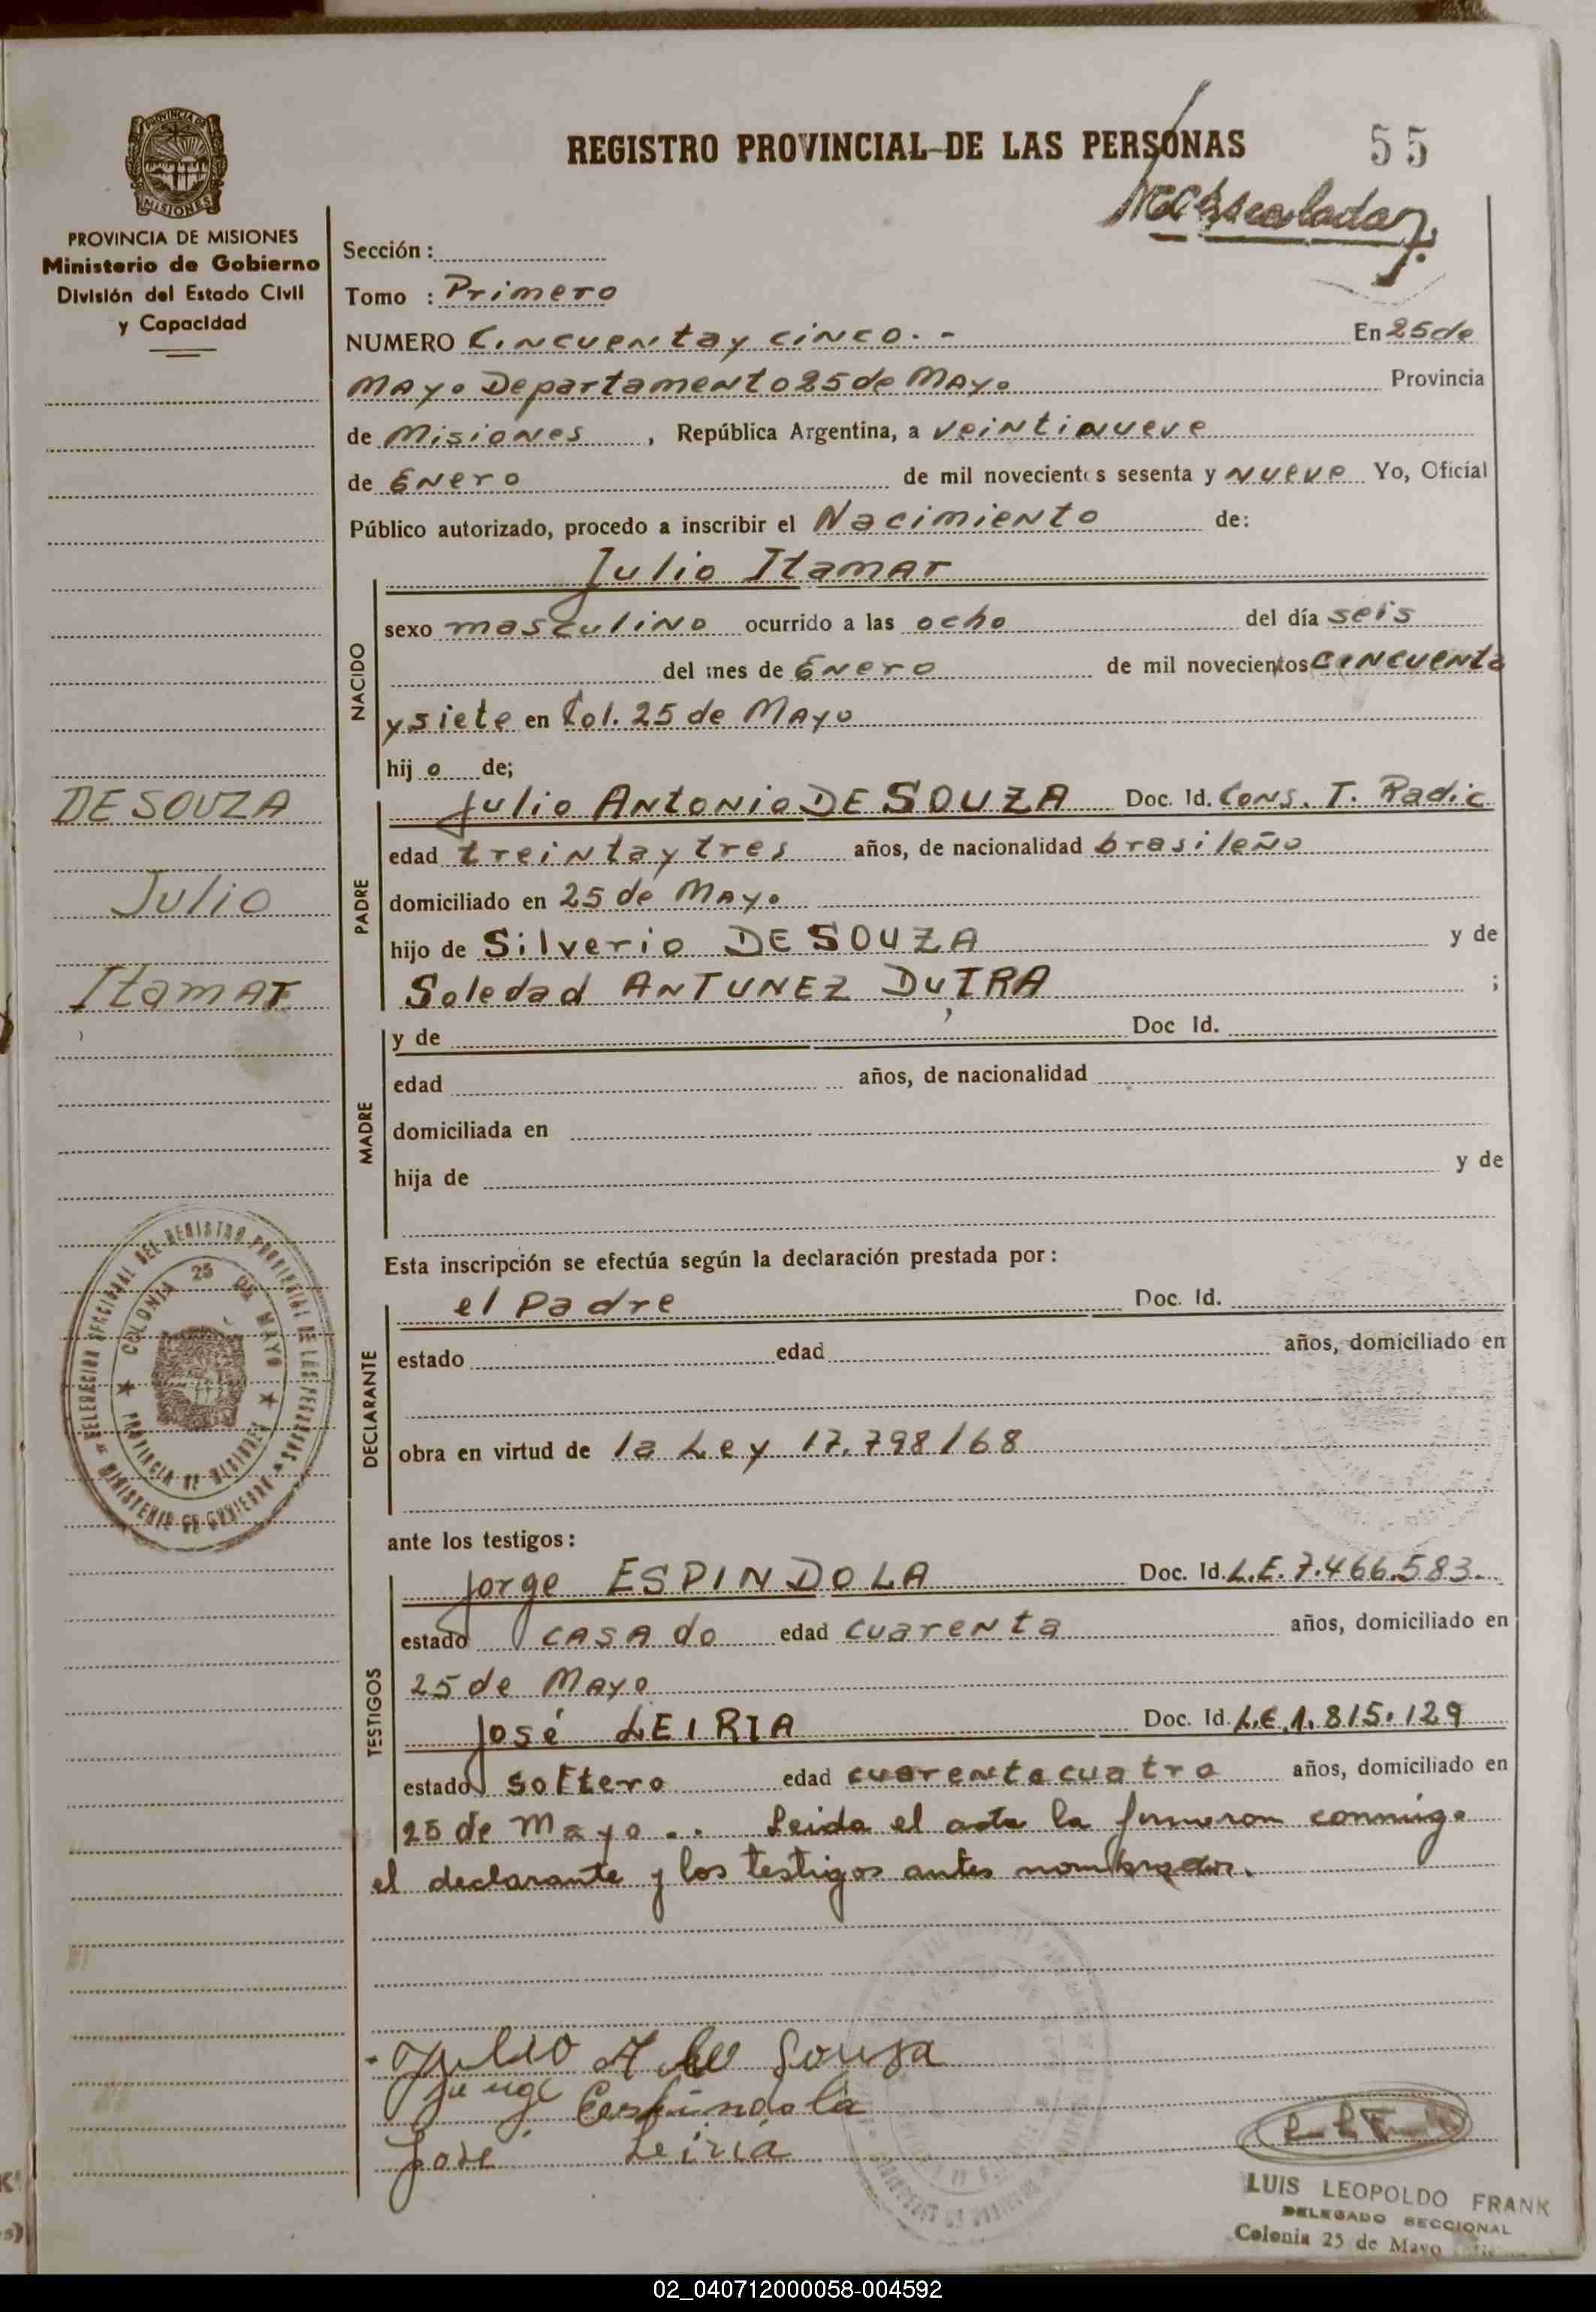 REGISTRO PROVINCIAL DE LAS PERSONAS
55
PROVINCIA DE
MISIONES
PROVINCIA DE MISIONES
Ministerio de Gobierno
División del Estado Civil
y Capacidad
Sección :
Tomo : Primero
NUMERO Cincuenta y cinco. - En 25 de
Mayo Departamento 25 de Mayo Provincia
de Misiones , República Argentina, a veintinueve
de Enero de mil novecientos sesenta y nueve Yo, Oficial
Público autorizado, procedo a inscribir el Nacimiento de:
Julio Itamar
NACIDO
sexo masculino ocurrido a las ocho del día seis
del mes de Enero de mil novecientos cincuenta
y siete en Col. 25 de Mayo
hij o de;
DE SOUZA
Julio
Itamar
PADRE
Julio Antonio DE SOUZA Doc. Id. Cons. T. Radic
edad treinta y tres años, de nacionalidad brasileño
domiciliado en 25 de Mayo
hijo de Silverio DE SOUZA y de
Soledad ANTUNEZ DUTRA ;
MADRE
y de Doc Id.
edad años, de nacionalidad
domiciliada en
hija de y de
Esta inscripción se efectúa según la declaración prestada por:
DECLARANTE
el Padre Doc. Id.
estado edad años, domiciliado en
obra en virtud de la Ley 17.798/68
DELEGACION SECCIONAL DEL REGISTRO PROVINCIAL DE LAS PERSONAS
MINISTERIO DE GOBIERNO
COLONIA 25 DE MAYO
PROVINCIA DE MISIONES
ante los testigos:
TESTIGOS
Jorge ESPINDOLA Doc. Id. L.E. 7.466.583.-
estado casado edad cuarenta años, domiciliado en
25 de Mayo
José LEIRIA Doc. Id. L.E. 1.815.129
estado soltero edad cuarenta cuatro años, domiciliado en
25 de Mayo.. Leida el acta la firmaron conmigo
el declarante y los testigos antes nombrados.
Julio A de Souza
Jorge Espindola
José Leiria
LUIS LEOPOLDO FRANK
DELEGADO SECCIONAL
Colonia 25 de Mayo
02_040712000058-004592